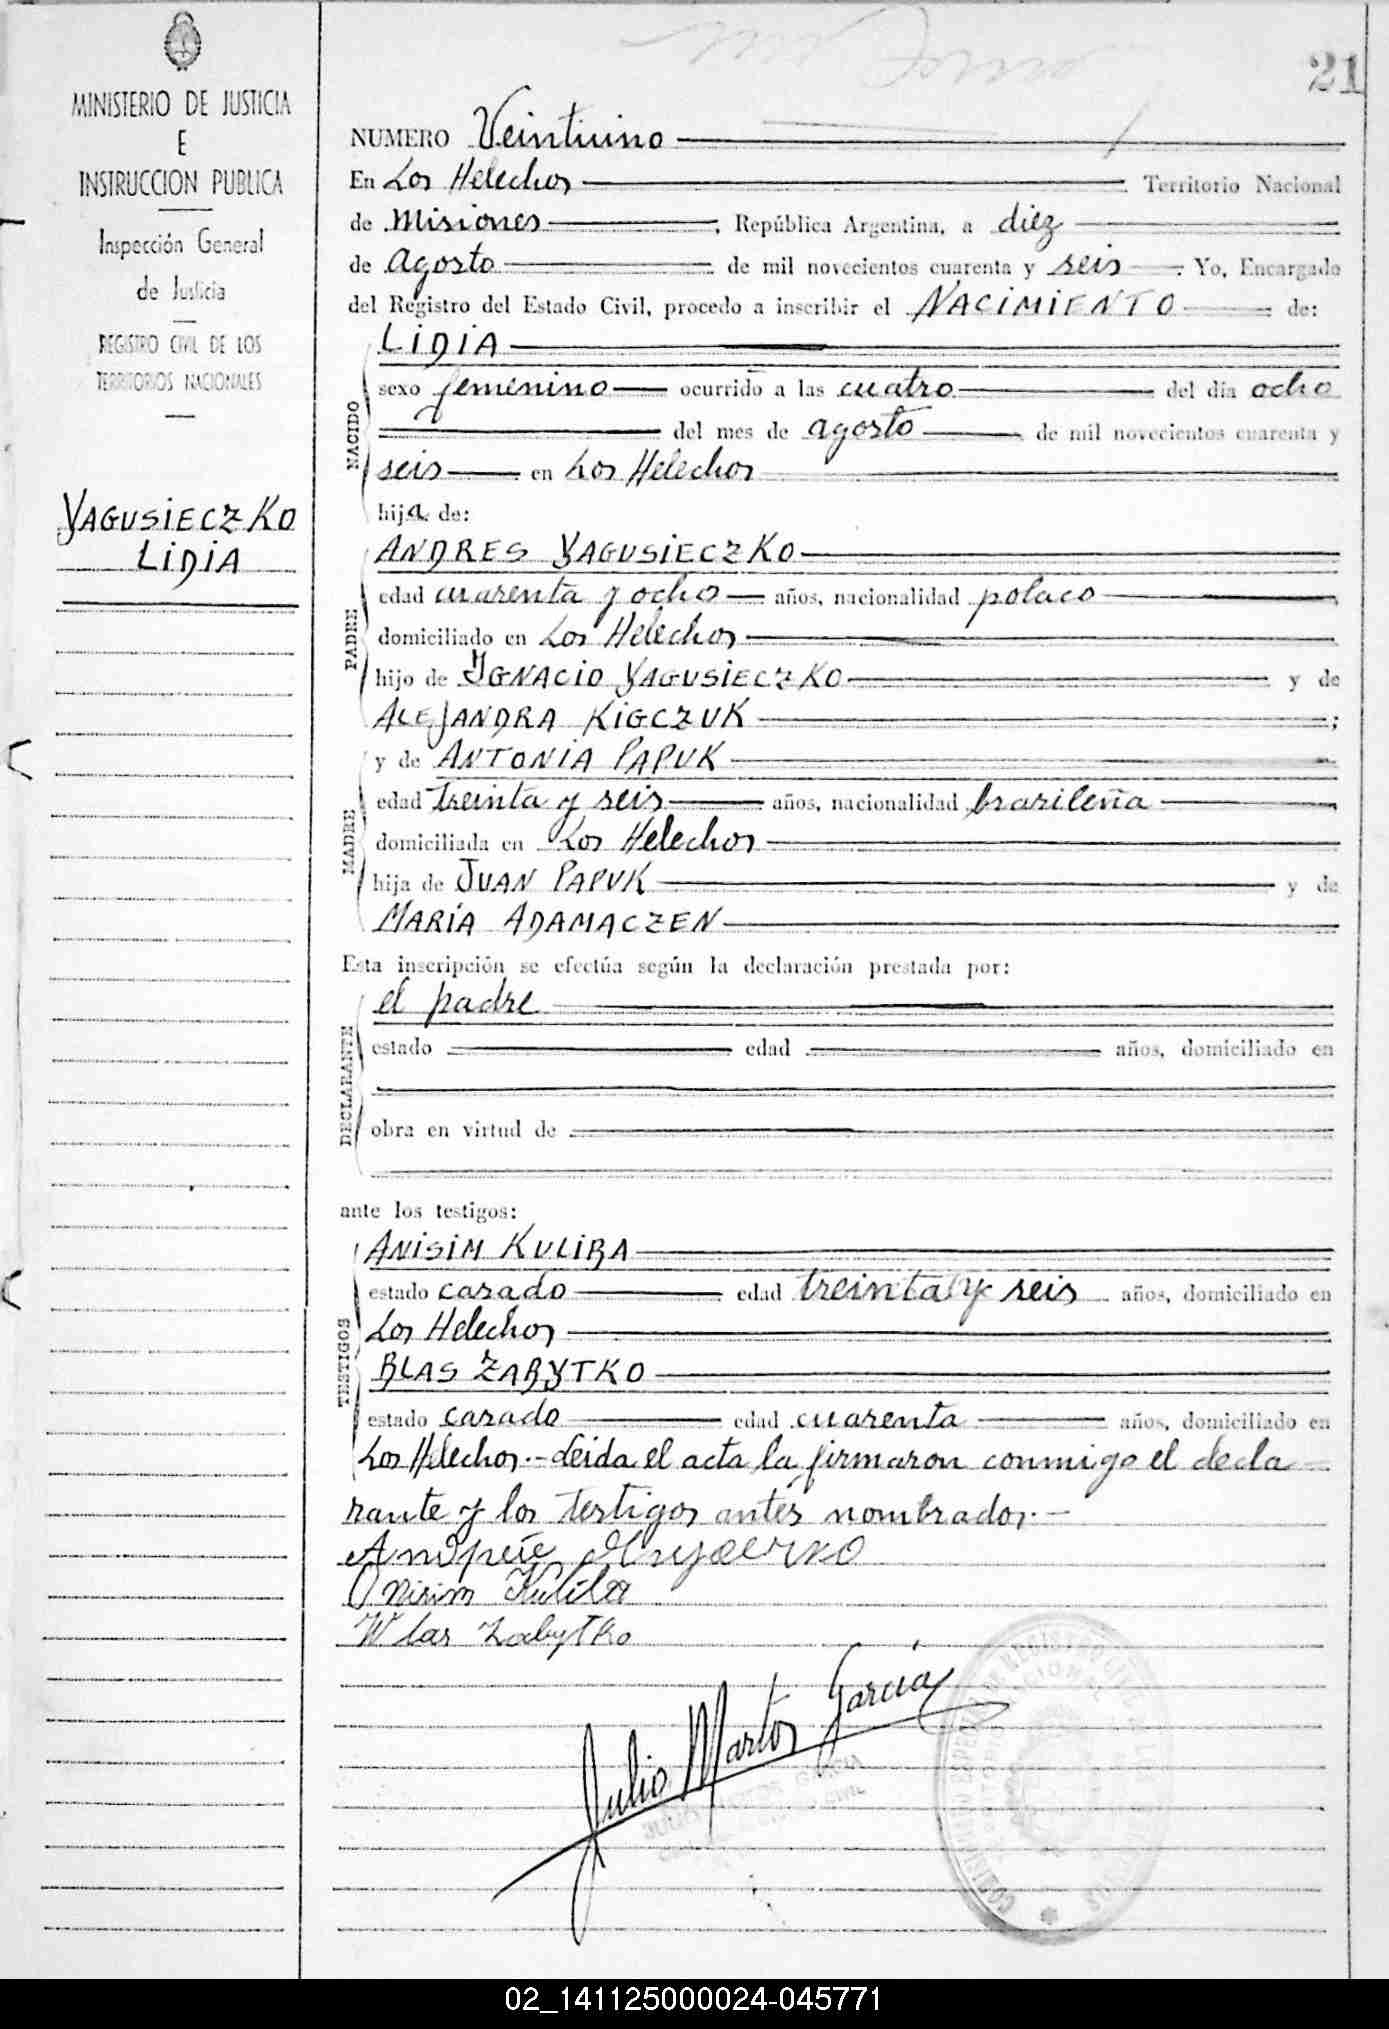 21
MINISTERIO DE JUSTICIA
E
INSTRUCCION PUBLICA
Inspección General
de Justicia
REGISTRO CIVIL DE LOS
TERRITORIOS NACIONALES
YAGUSIECZKO
LIDIA
NUMERO Veintiuno
En Los Helechos Territorio Nacional
de Misiones, República Argentina, a diez
de agosto de mil novecientos cuarenta y seis. Yo, Encargado
del Registro del Estado Civil, procedo a inscribir el NACIMIENTO de:
NACIDO
LIDIA
sexo femenino ocurrido a las cuatro del día ocho
del mes de agosto, de mil novecientos cuarenta y
seis en Los Helechos
hija de:
PADRE
ANDRES YAGUSIECZKO
edad cuarenta y ocho años, nacionalidad polaco
domiciliado en Los Helechos
hijo de IGNACIO YAGUSIECZKO y de
ALEJANDRA KIGCZUK;
MADRE
y de ANTONIA PAPUK
edad treinta y seis años, nacionalidad brasileña
domiciliada en Los Helechos
hija de JUAN PAPUK y de
MARÍA ADAMACZEN
Esta inscripción se efectúa según la declaración prestada por:
DECLARANTE
el padre
estado edad años, domiciliado en
obra en virtud de
ante los testigos:
TESTIGOS
ANISIM KULIBA
estado casado edad treinta y seis años, domiciliado en
Los Helechos
BLAS ZABYTKO
estado casado edad cuarenta años, domiciliado en
Los Helechos.- Leida el acta la firmaron conmigo el decla
rante y los testigos antes nombrados.-
Onisim Kuliba
Wlas Zabytko
Julio Martos García
02_141125000024-045771